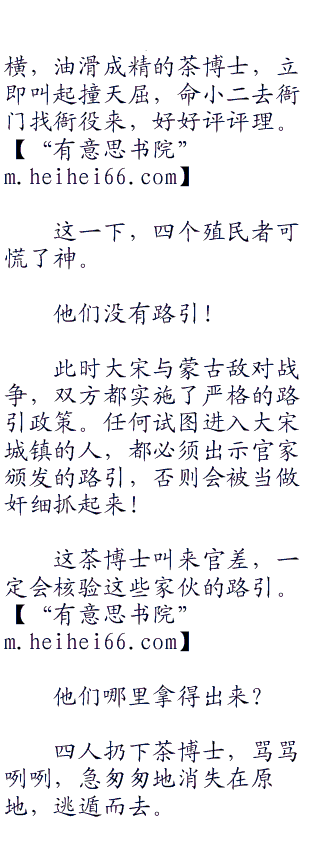 横，油滑成精的茶博士，立
即叫起撞天屈，命小二去衙
门找衙役来，好好评评理。
【“有意思书院”
m.heihei66.com】
这一下，四个殖民者可
慌了神。
他们没有路引！
此时大宋与蒙古敌对战
争，双方都实施了严格的路
引政策。任何试图进入大宋
城镇的人，都必须出示官家
颁发的路引，否则会被当做
奸细抓起来！
这茶博士叫来官差，一
定会核验这些家伙的路引。
【“有意思书院”
m.heihei66.com】
他们哪里拿得出来？
四人扔下茶博士，骂骂
咧咧，急匆匆地消失在原
地，逃遁而去。